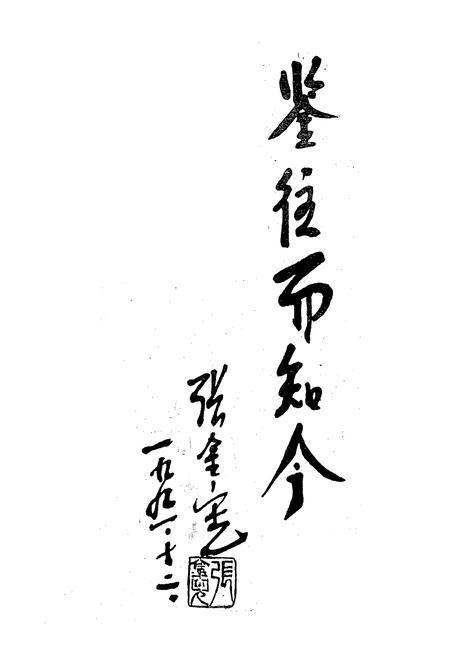 鉴往而知今
张金宪
一九九一·十二·